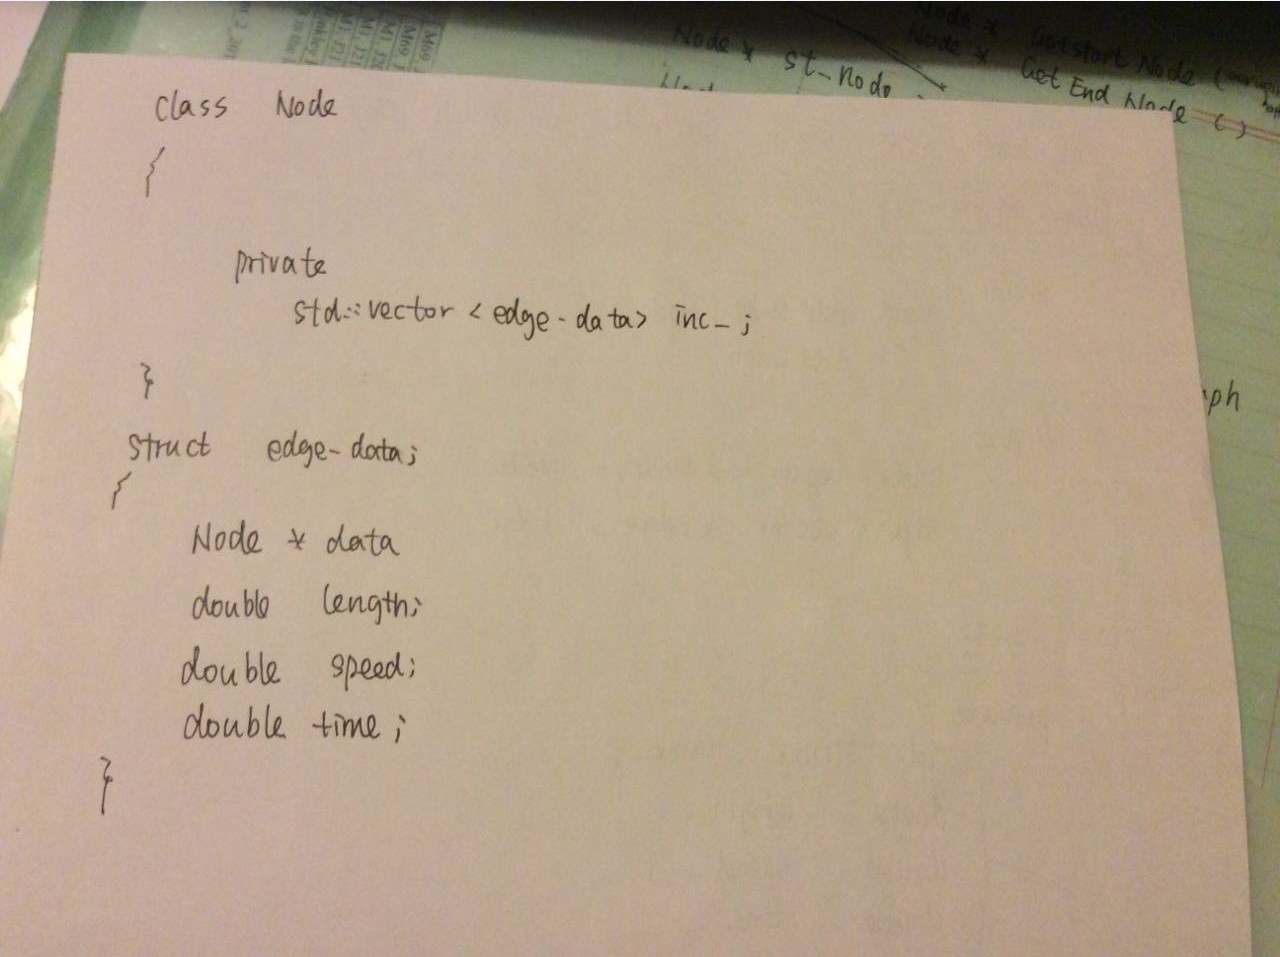 Node * Getstart Node (
Node * st_node
Node *
Get End Node ( )
class Node
{
private
std::vector < edge-data> inc_ ;
}
struct edge-data;
{
Node * data
double length;
double speed;
double time ;
}